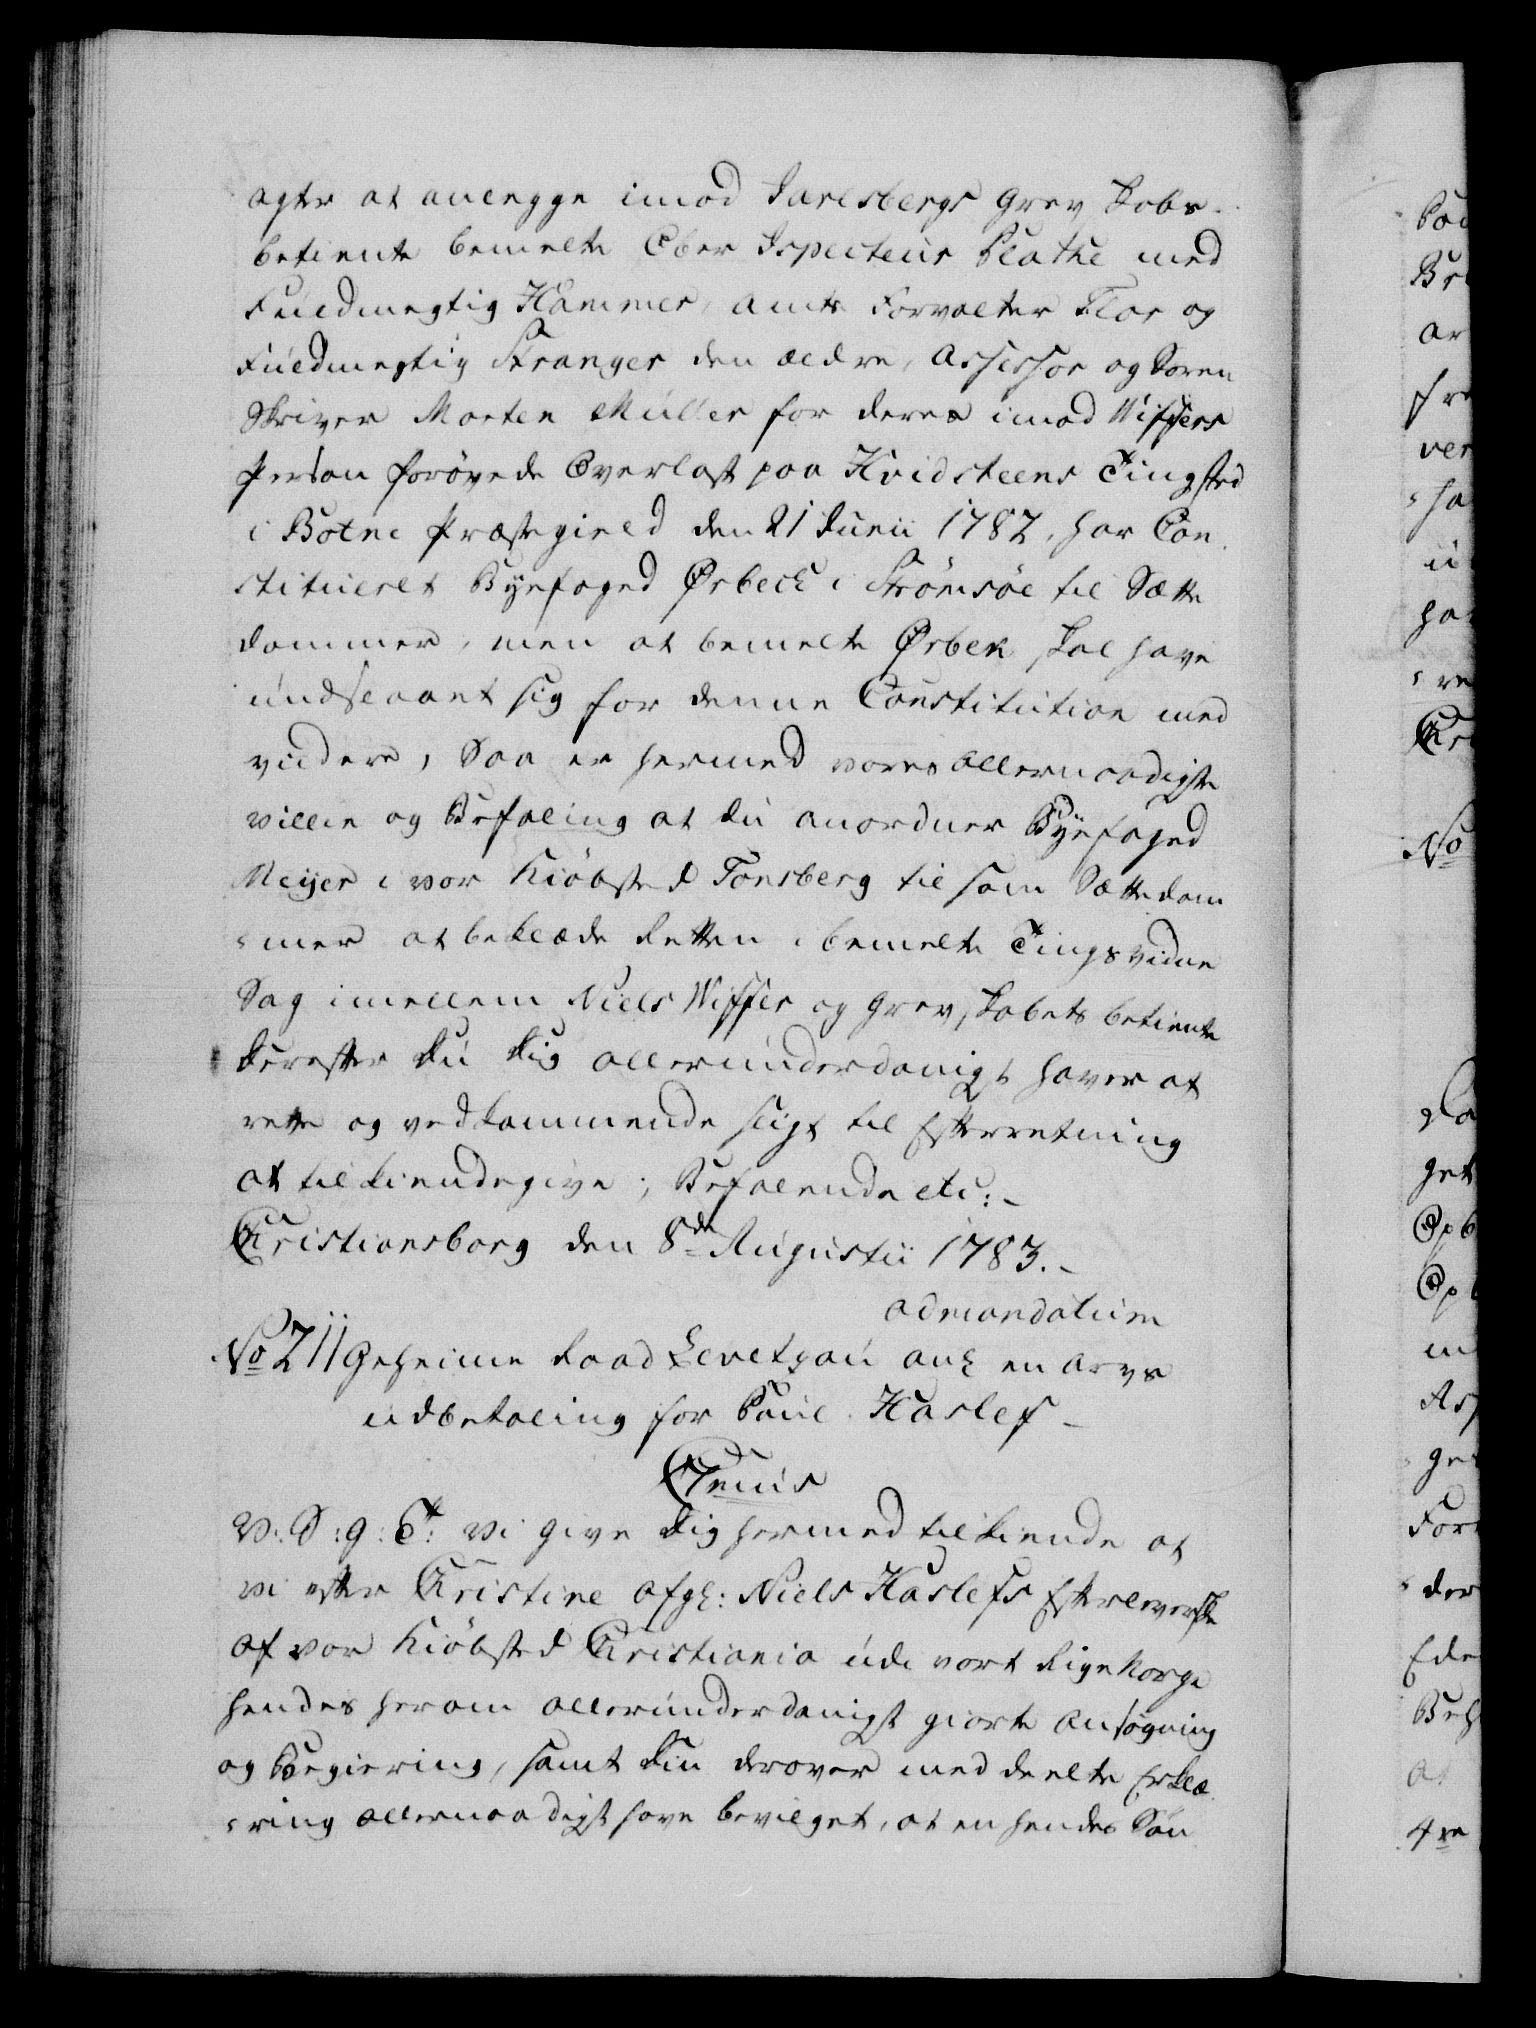 agter at anlegge imod Jarlsbergs Grev Skabs
betiente bemelte Ober Ispecteur Plathe med
Fuldmegtig Hammer, amts Forvalter Flor og
Fuldmegtig Stranger den ældre, Assessor og Soren
Skriver Morten Müller for deres imod Wissers
Person forøvede Overlast paa Hvidsteens Tingsted
i Botne Præstegield den 21 Junii 1782, har Con
stitueret Byefoged Ørbech i Strømsøe til Sætte
dommer, men at bemelte Ørbek skal have
undslaaet sig for denne Constitution med
videre, Saa er hermed vores allernaadigste
villie og Befaling at du anordner Byefoged
Meyer i vor Kiøbsted Tonsberg til som Sættedom
=mer at beklæde Retten i bemelte Tingsvidne
Sag imellem Niels Wisser og Grevskabets betiente
Derefter Du dig allerunderdanigst haver at
rette og vedkommende sligt til Efterretning
at tilkiendegive; Befalende etc:-
Christiansborg den 8de Augustii 1783.-
ad mandatum
No 211 Geheime Raad Levetzau ang en arvs
udbetaling for Poul Haslef-
Clemis
V: S: g: T: Vi give dig hermed tilkiende at
vi efter Christine afg: Niels Haslefs Efterleverske
af vor Kiøbsted Christiania udi vort Rige Norge
hendes herom allerunderdanigst giorte ansøgning
og Begiering, samt din derover meddeelte Erklæ
=ring allernaadigst have bevilget, at en hendes Søn